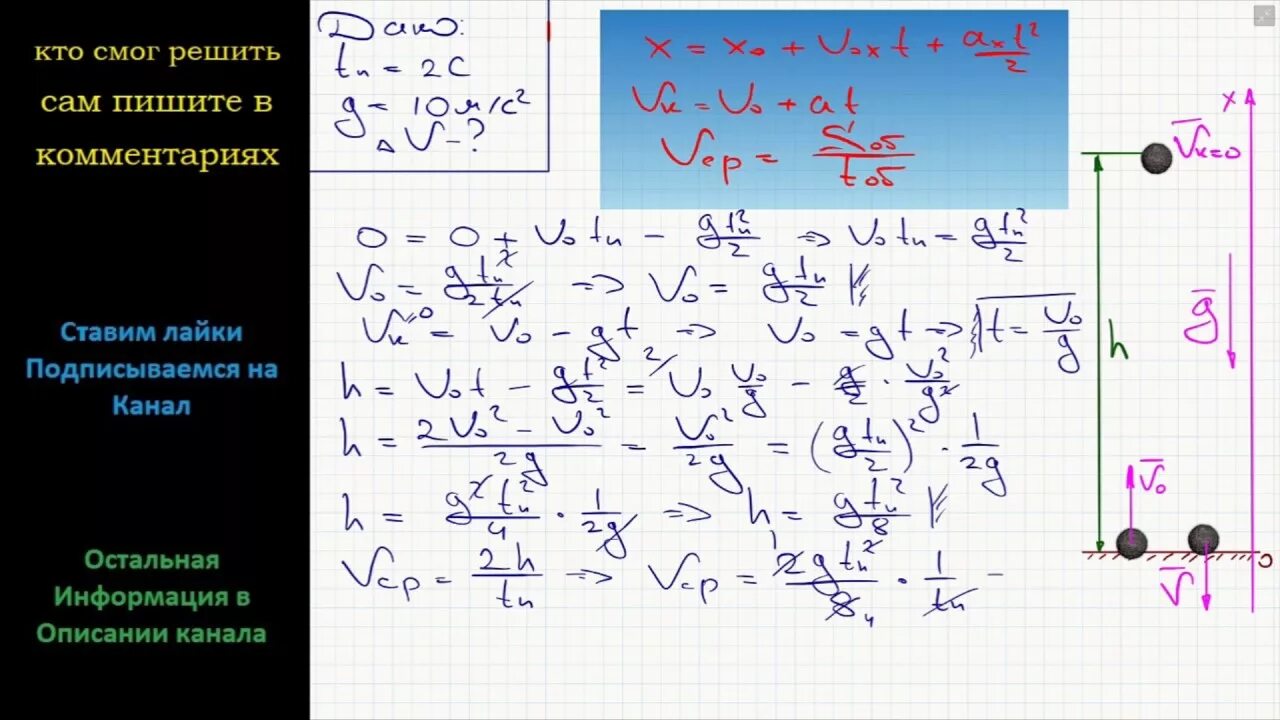 кто смог решить
сам пишите в
комментариях
Ставим лайки
Подписываемся на
Канал
Остальная
Информация в
Описании канала
Дано:
tп = 2с
g = 10 м/с²
ΔV - ?
x = x₀ + V₀ₓt + aₓt²/2
Vк = V₀ + at
Vср = Sоб/tоб
0 = 0 + V₀tп - gtп²/2 => V₀tп = gtп²/2
V₀ = gtп²/2tп => V₀ = gtп/2
Vк = V₀ - gt => V₀ = gt => t = V₀/g
h = V₀t - gt²/2 = V₀ V₀/g - g/2 · V₀²/g²
h = (2V₀² - V₀²)/2g = V₀²/2g = (gtп/2)² · 1/2g
h = g²tп²/4 · 1/2g => h = gtп²/8
Vср = 2h/tп => Vср = 2gtп²/8 4 · 1/tп =
x
V̅к=0
g̅
h
V̅₀
V̅
0